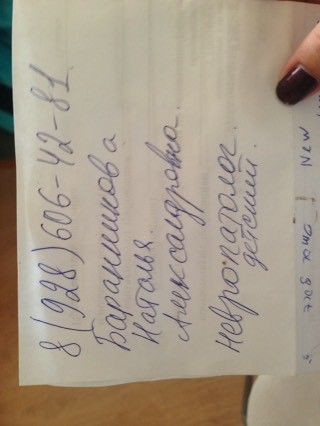 8(928)606-42-81.
Баранникова
Наталья
Александровна.
невропатолог
детский.
New